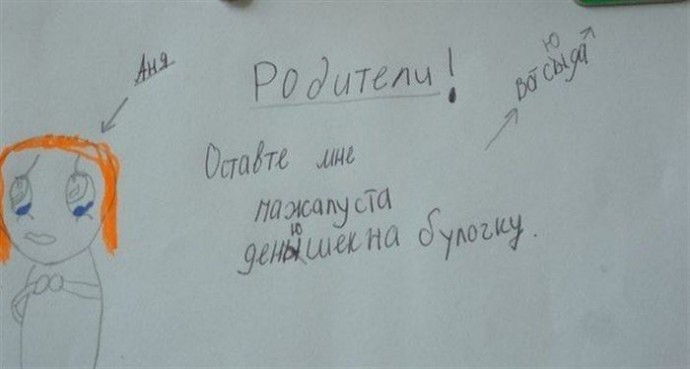 Аня
Родители!
ю
Восыда
Оставте мне
пажалуста
ю
денышек на булочку.